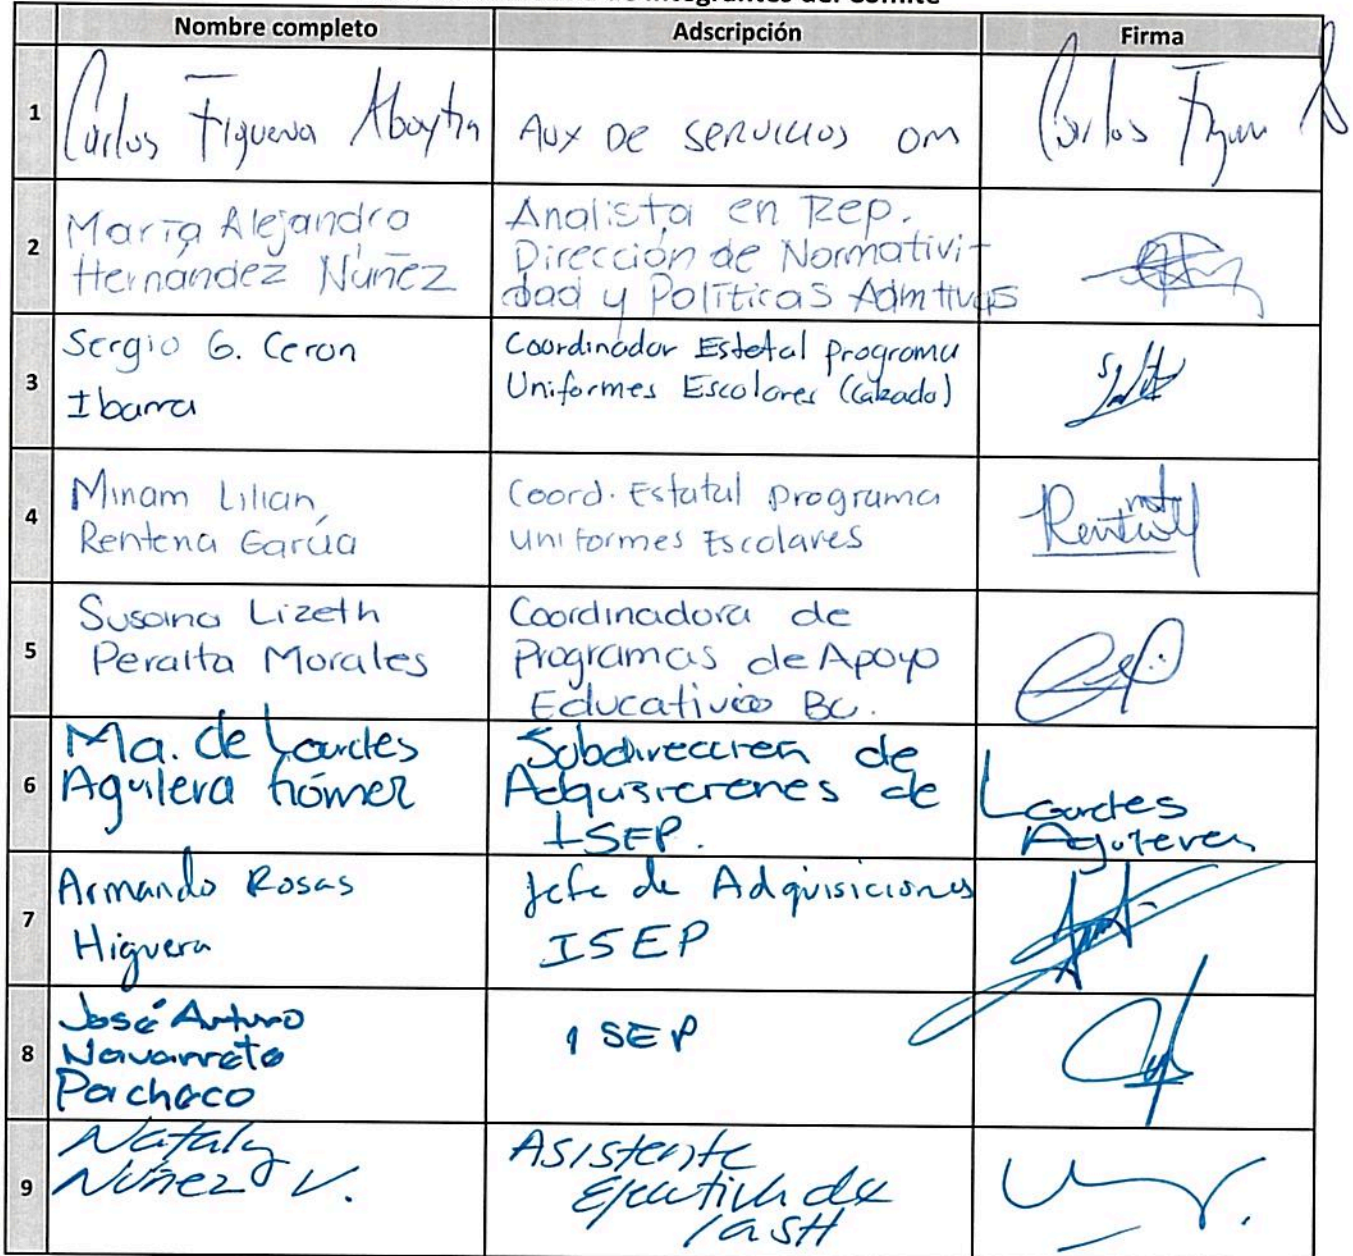 Integrantes del Comité
Nombre completo Adscripción Firma
1 Carlos Figueroa Aboytia Aux De servicios om Carlos Figue
2 María Alejandra
Hernández Núñez
Analista en Rep.
Dirección de Normativi-
dad y Políticas Admtivas
3 Sergio G. Ceron
Ibarra
Coordinador Estetal programa
Uniformes Escolares (Calzado)
4 Miriam Lilian
Renteria García
Coord. Estatal programa
uniformes Escolares
5 Susana Lizeth
Peralta Morales
Coordinadora de
Programas de Apoyo
Educativo BC.
6 Ma. de Lourdes
Aguilera Gómez
Subdirección de
Adquisiciones de
ISEP.
Lourdes
Aguilera
7 Armando Rosas
Higuera
Jefe de Adquisiciones
ISEP
8 José Arturo
Navarrete
Pacheco
ISEP
9 Nataly
Núñez V.
Asistente
Ejecutiva de
la SH